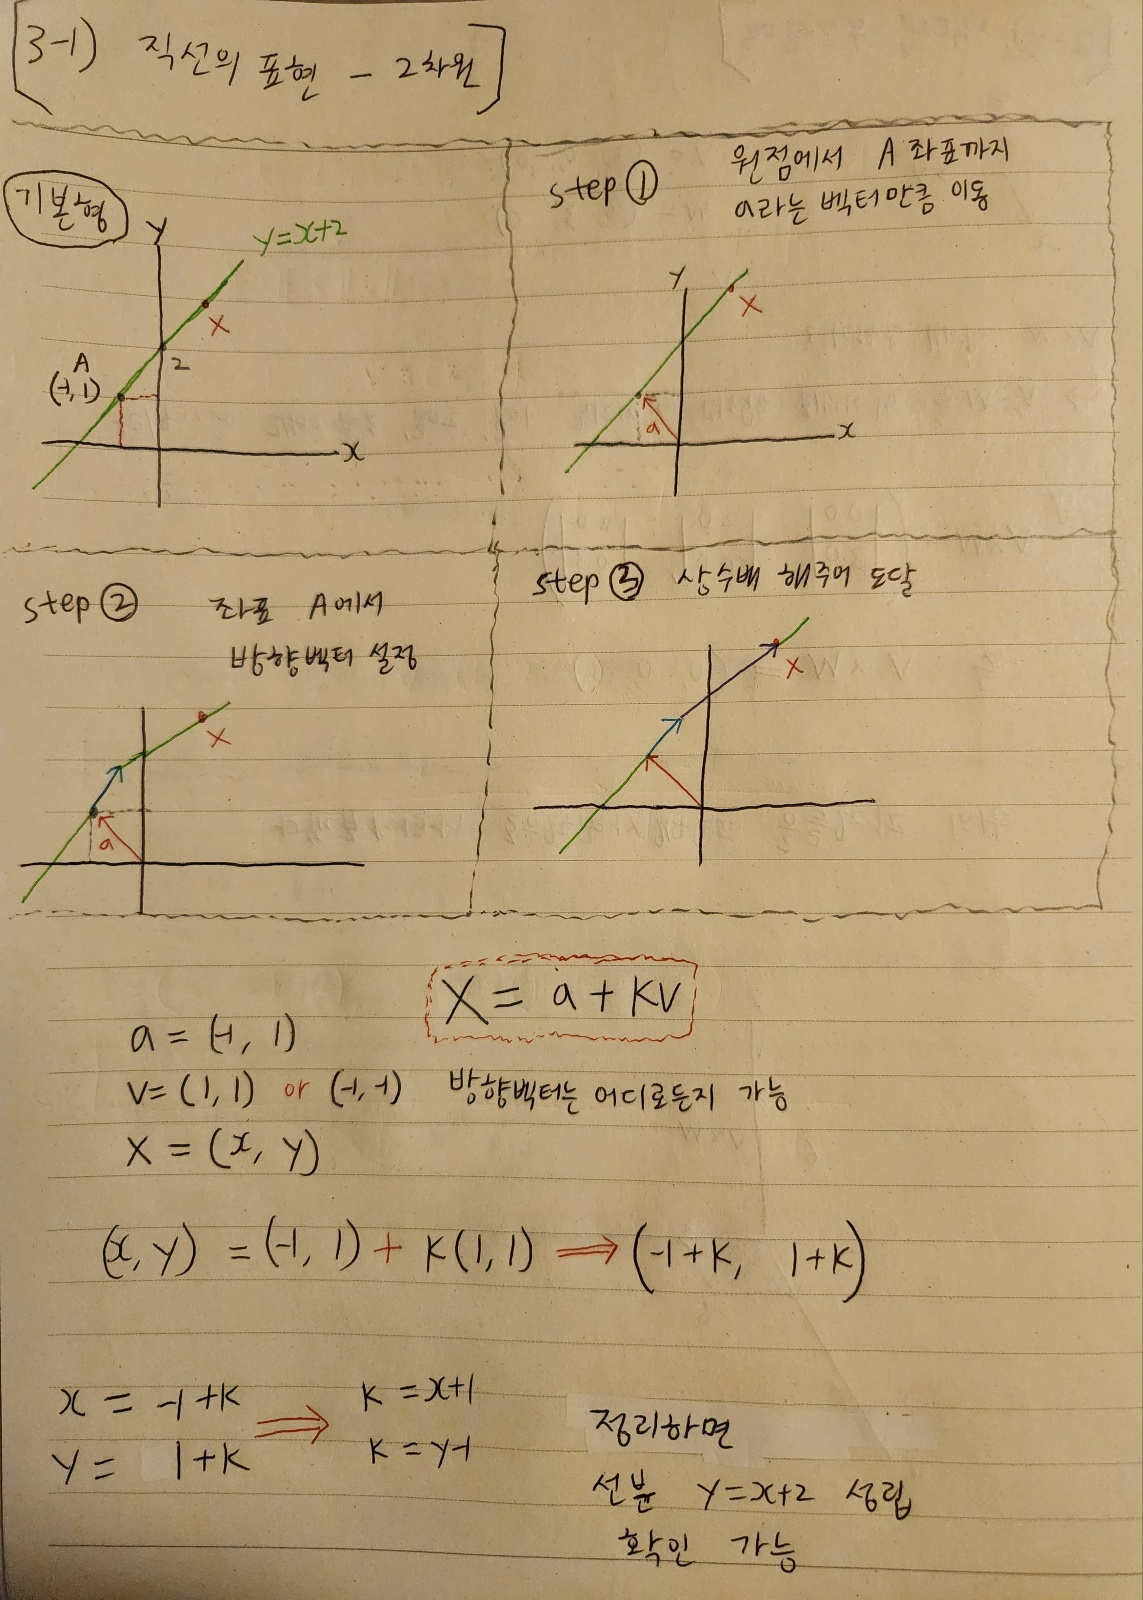 3-1) 직선의 표현 - 2차원
기본형
Y
y=x+2
X
2
A
(-1, 1)
x
step ①
원점에서 A 좌표까지
a라는 벡터만큼 이동
Y
X
a
x
step ②
좌표 A에서
방향벡터 설정
X
a
step ③ 상수배 해주어 도달
X
X = a + kv
a = (-1, 1)
v = (1, 1) or (-1, -1) 방향벡터는 어디로든지 가능
X = (x, y)
(x, y) = (-1, 1) + k(1, 1) ⟹ (-1+k, 1+k)
x = -1+k ⟹ k = x+1
y = 1+k k = y-1
정리하면
선분 y=x+2 성립
확인 가능